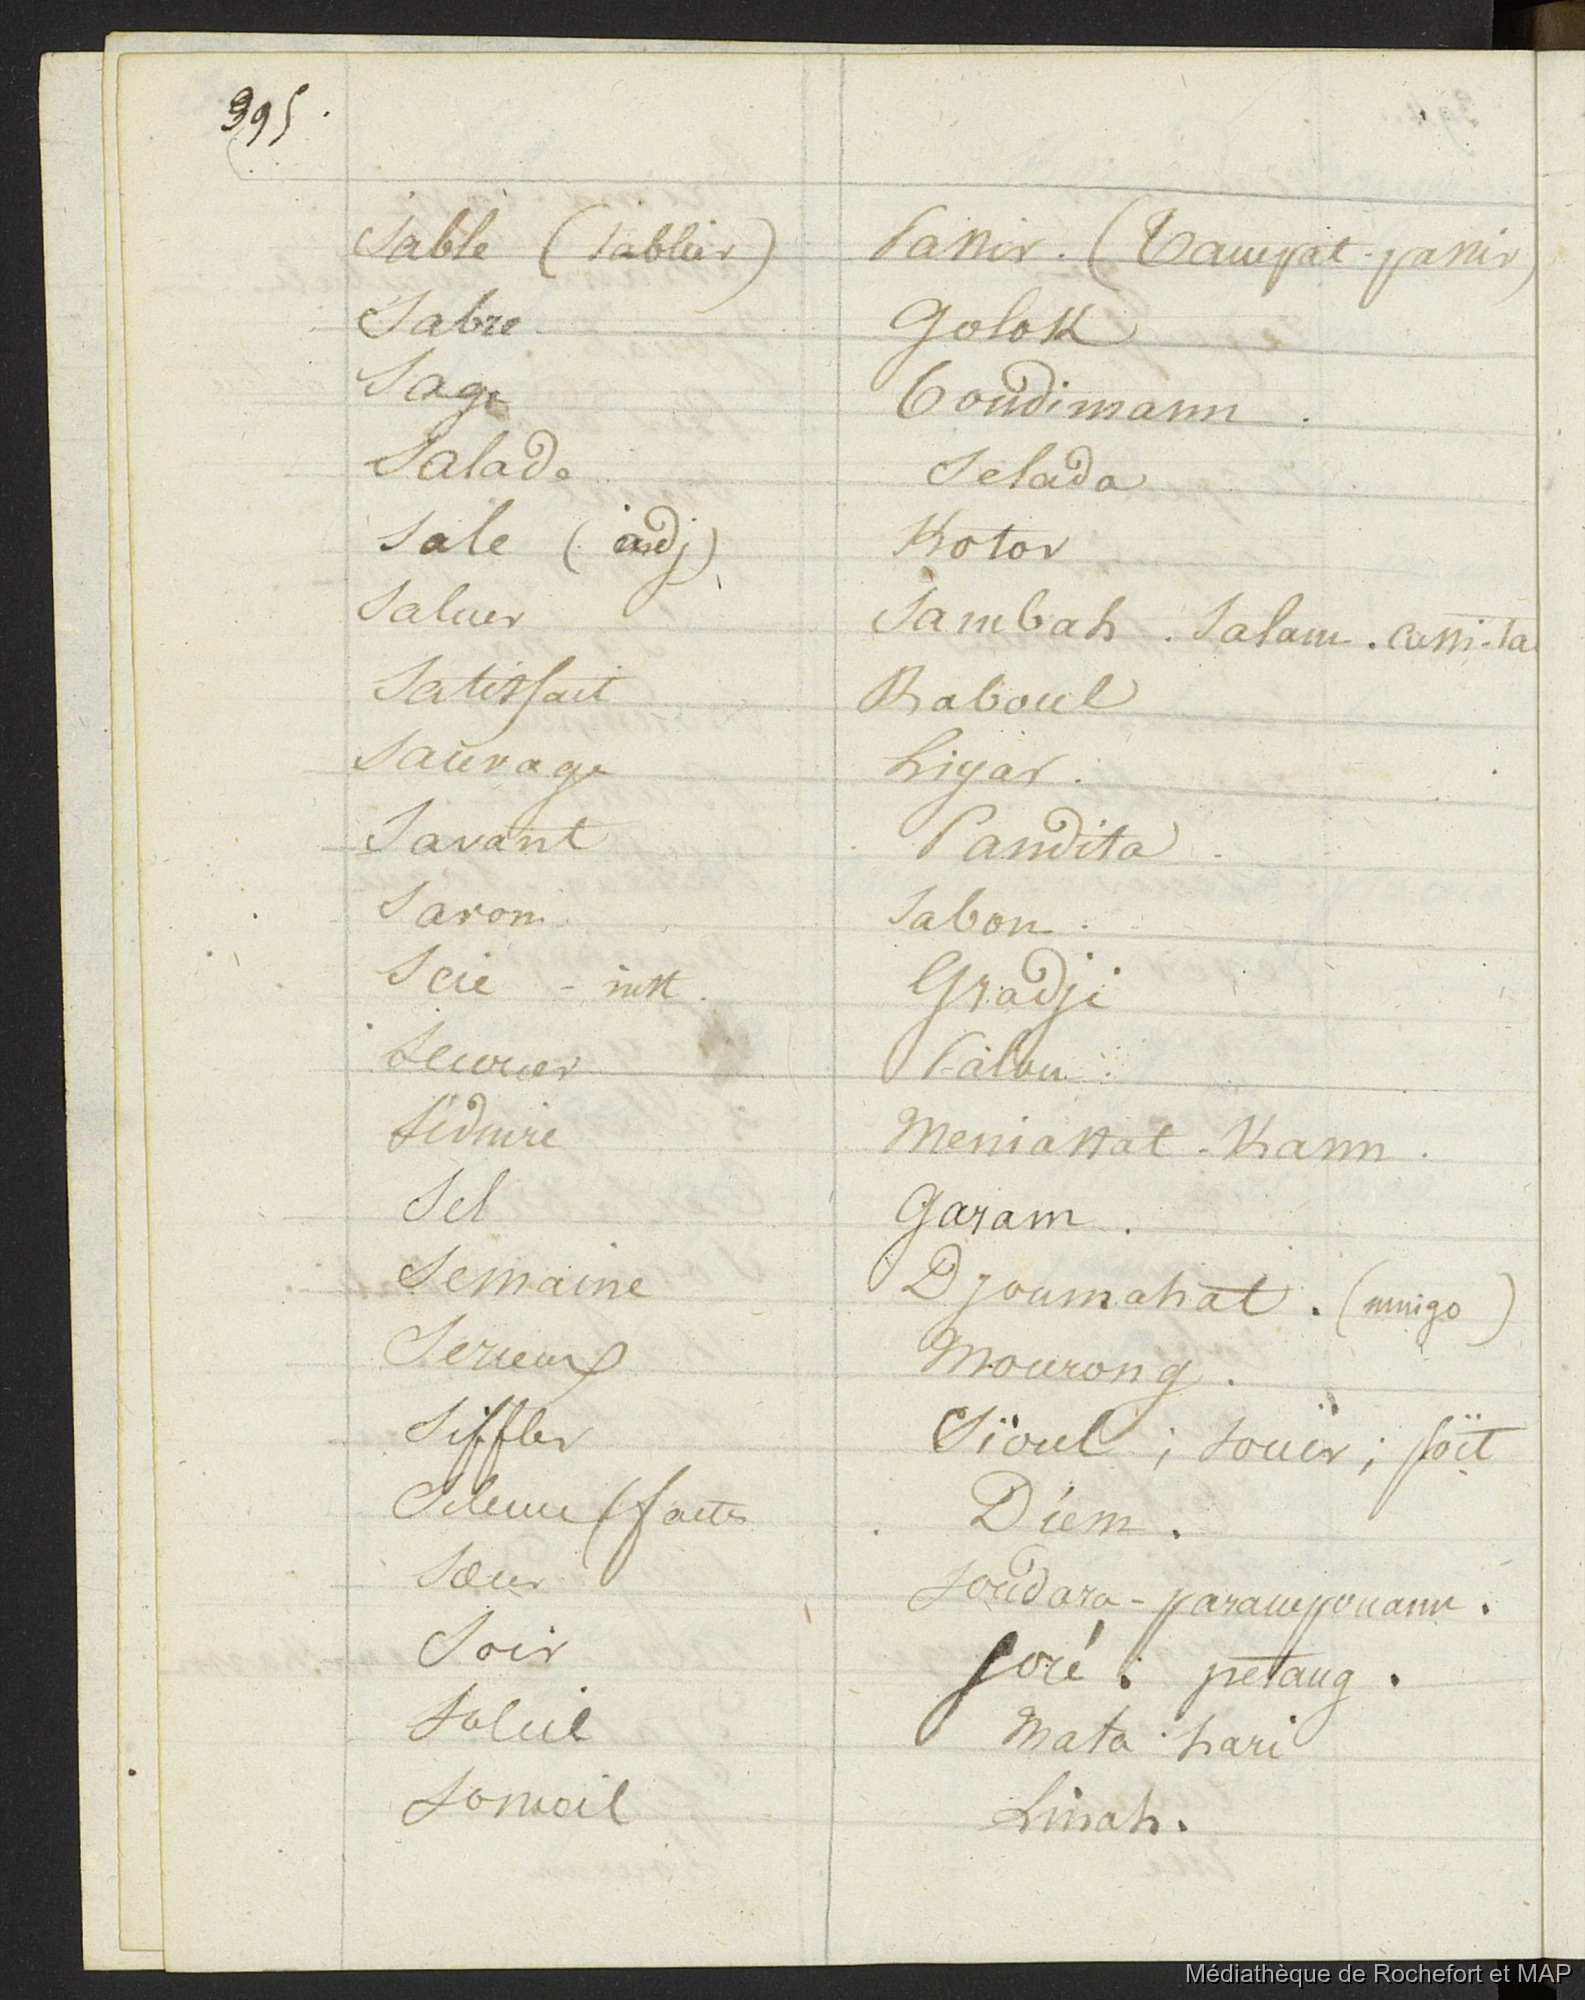 395.
Sable (sablier) Passir. (Tampat-passir)
Sabre Golok
Sage Boudimann.
Salade Selada
Sale (adj) Kotor
Saluer Sambah. Salam. cassi-ta
Satisfait Kaboul
Sauvage Liyar.
Savant Pandita.
Savon Sabon.
Scie - inst. Gradji
Palou.
Séduire Meniassat-Kann.
Sel Garam.
Semaine Djoumahat. (mnigo)
Serieux Mourong.
Siffler Sïoul; souïr; söit
Silence (faites Diem.
Sœur Soudara-parampouann.
Soir Soré. petang.
Soleil Mata-hari
Someil Linah.
Médiathèque de Rochefort et MAP